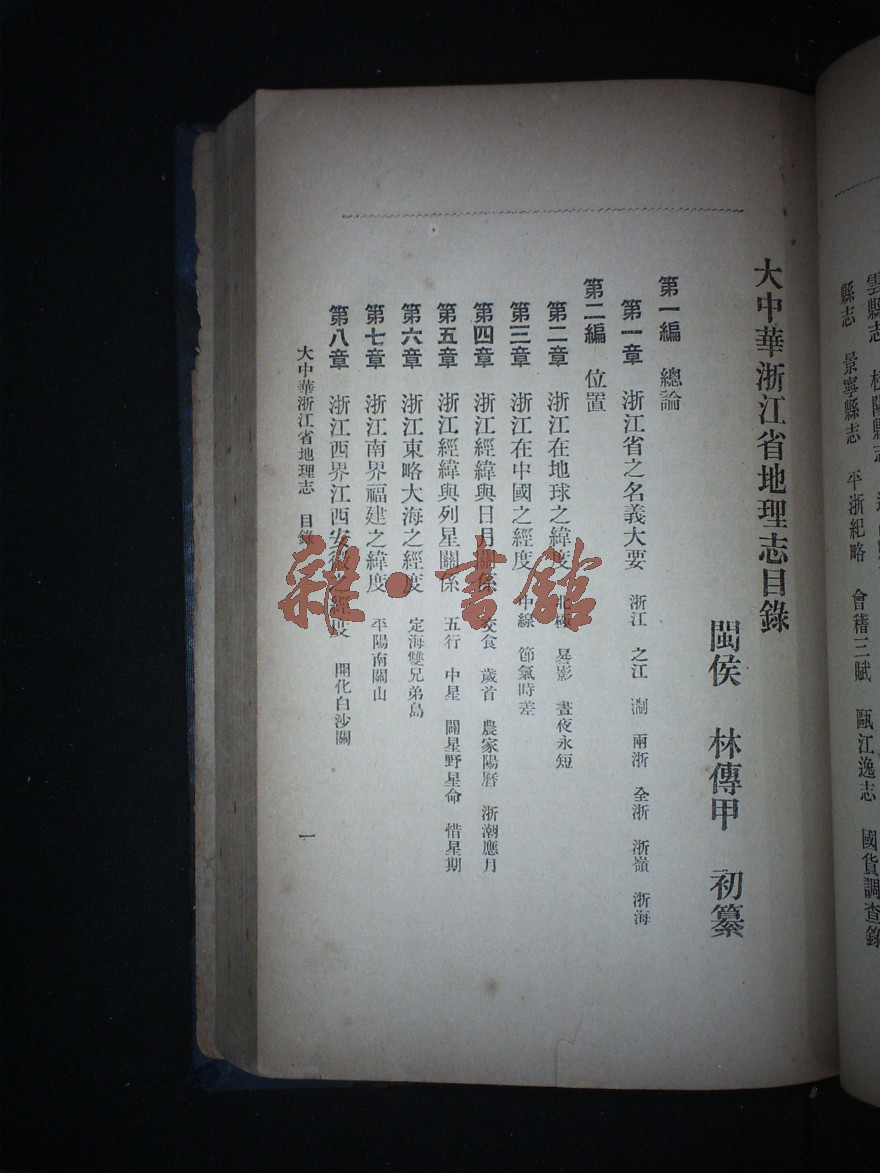 大中華浙江省地理志目錄
閩侯 林傳甲 初纂
第一編 總論
第一章 浙江省之名義大要 浙江 之江 淛 兩浙 全浙 浙嶺 浙海
第二編 位置
第二章 浙江在地球之緯度 北極 晷影 晝夜永短
第三章 浙江在中國之經度 中線 節氣時差
第四章 浙江經緯與日月關係 交食 歲首 農家陽曆 浙潮應月
第五章 浙江經緯與列星關係 五行 中星 闢星野星命 惜星期
第六章 浙江東略大海之經度 定海雙兄弟島
第七章 浙江南界福建之緯度 平陽南關山
第八章 浙江西界江西安徽之經度 開化白沙關
大中華浙江省地理志 目錄 一
縣志 景寧縣志 平浙紀略 會稽三賦 甌江逸志 國貨調查錄
雜·書館